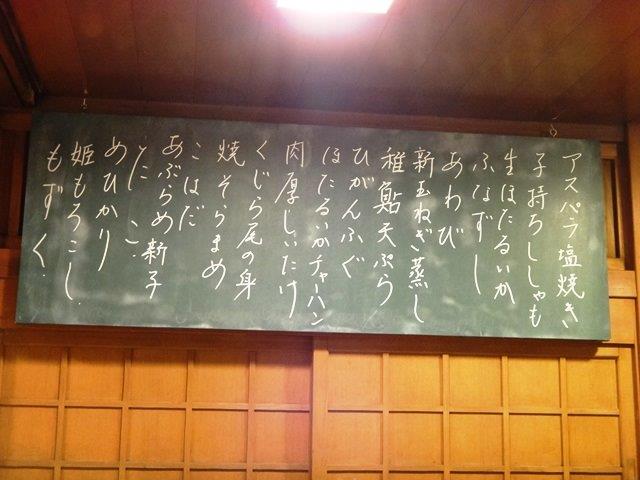 アスパラ塩焼き
子持ちししゃも
生ほたるいか
ふなずし
あわび
新玉ねぎ蒸し
稚鮎天ぷら
ひがんふぐ
ほたるいかチャーハン
肉厚しいたけ
くじら尾の身
焼そらまめ
こはだ
あぶらめ新子
たこ
めひかり
姫もろこし
もずく